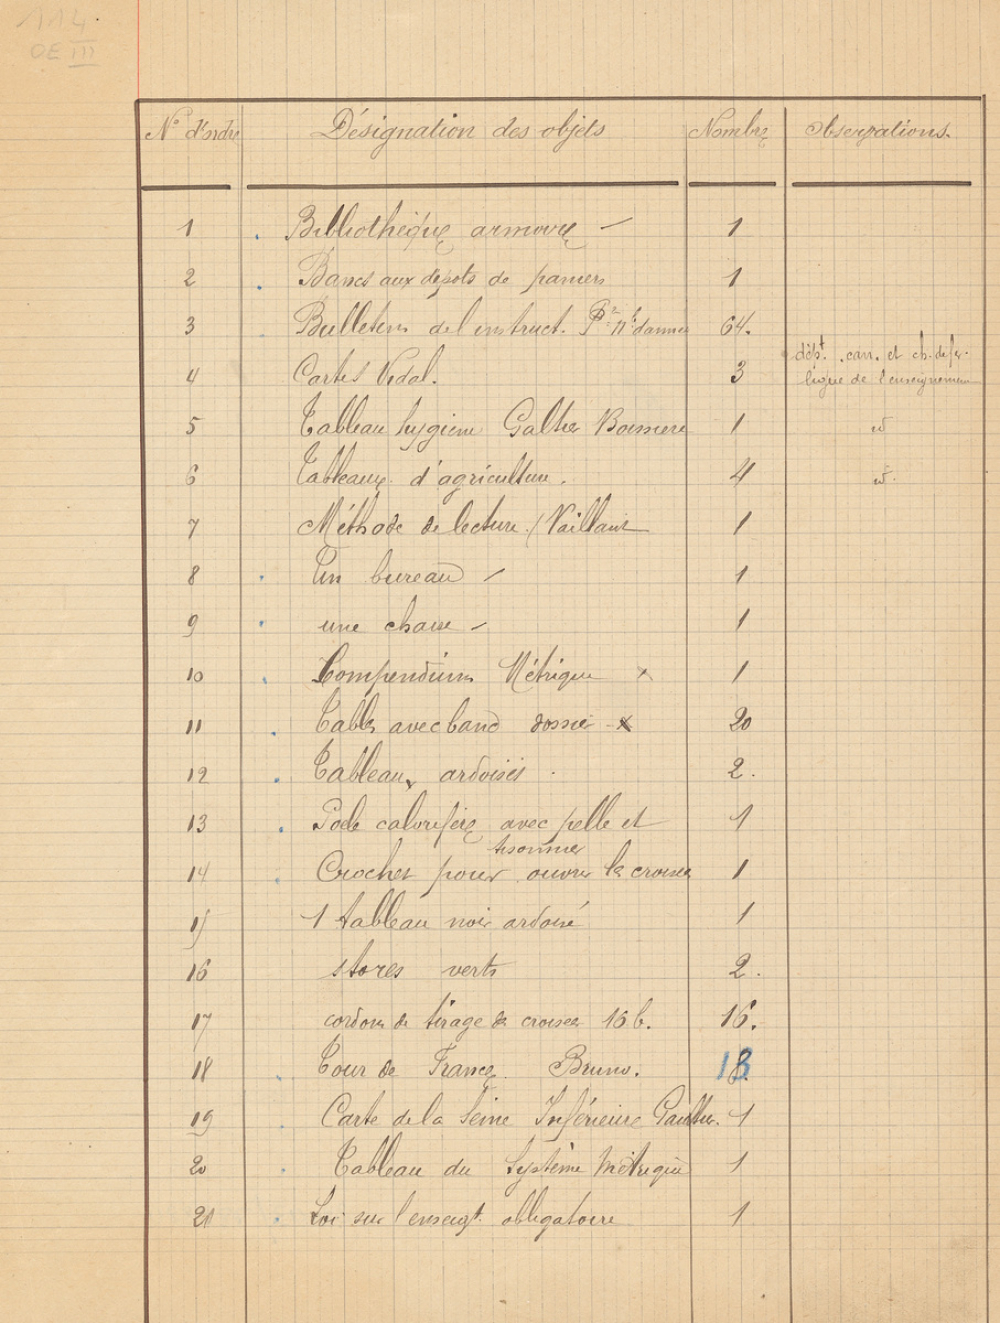 114
OE III
N° d'ordre Désignation des objets Nombre Observations.
1 Bibliothèque armoire — 1
2 Bancs aux dépots de paniers 1
3 Bulletin de l'instruct. 64.
dépt.
4 Cartes Vidal. 3 de l'enseignement
5 Tableau hygiène Galtier Boissière 1 id
6 Tableaux d'agriculture. 4 id.
7 Méthode de lecture. (Vaillant 1
8 Un bureau — 1
9 une chaise — 1
10 Compendium Métrique x 1
11 Tables avec banc dossier - x 20
12 Tableaux ardoisés . 2.
13 Poele calorifère avec pelle et 1
tisonnier
14 Crochet pour ouvrir les croisées 1
15 1 tableau noir ardoisé 1
16 stores verts 2.
17 cordons de tirage de croisées 16 b. 16.
18 Tour de France. Bruno. 18
19 Carte de la Seine Inférieure 1
20 Tableau du Système Métrique 1
21 Loi sur l'enseigt. obligatoire 1